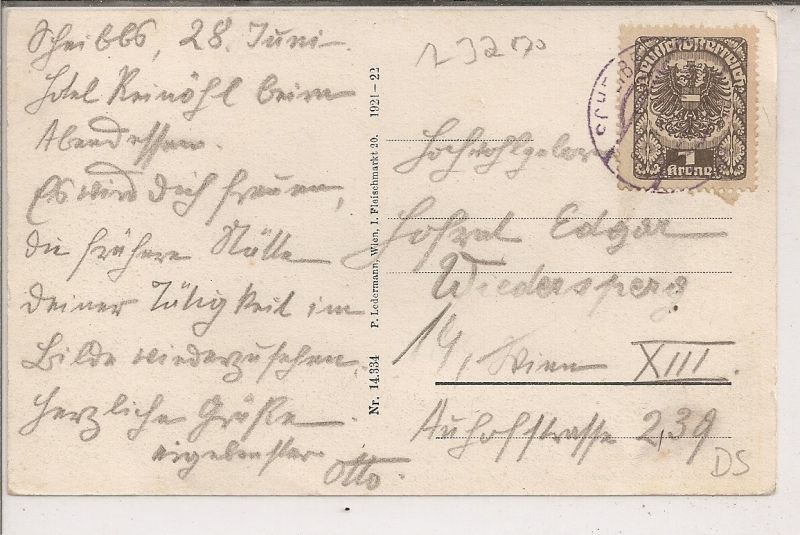 Scheibbs, 28. Juni.
Hotel Reinöhl beim
Abendessen.
Es wird Dich freuen,
die frühere Stätte
Deiner Tätigkeit im
Bilde wiederzusehen.
Herzliche Grüße
Otto.
Nr. 14.334 P. Ledermann, Wien, I. Fleischmarkt 20. 1921-22
Deutschösterreich
1
Krone
Hochwohlgeboren
Hofrat Edgar
Wiedersperg
Wien XIII.
Auhofstrasse 239
DS